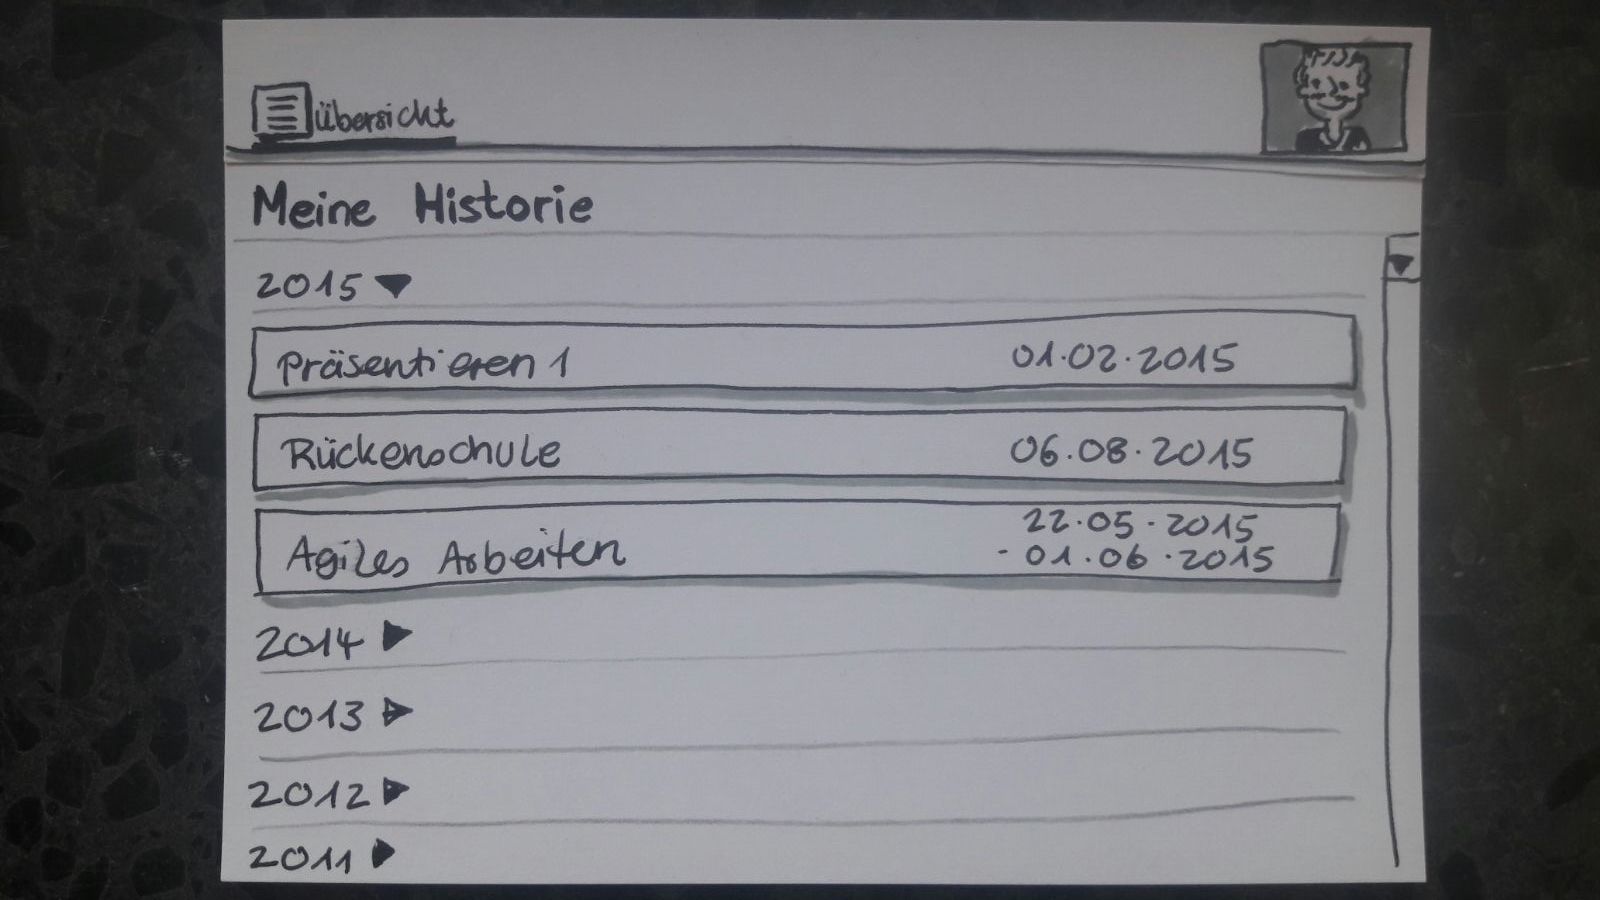 Übersicht
Meine Historie
2015
Präsentieren 1 01.02.2015
Rückenschule 06.08.2015
Agiles Arbeiten 22.05.2015
- 01.06.2015
2014
2013
2012
2011